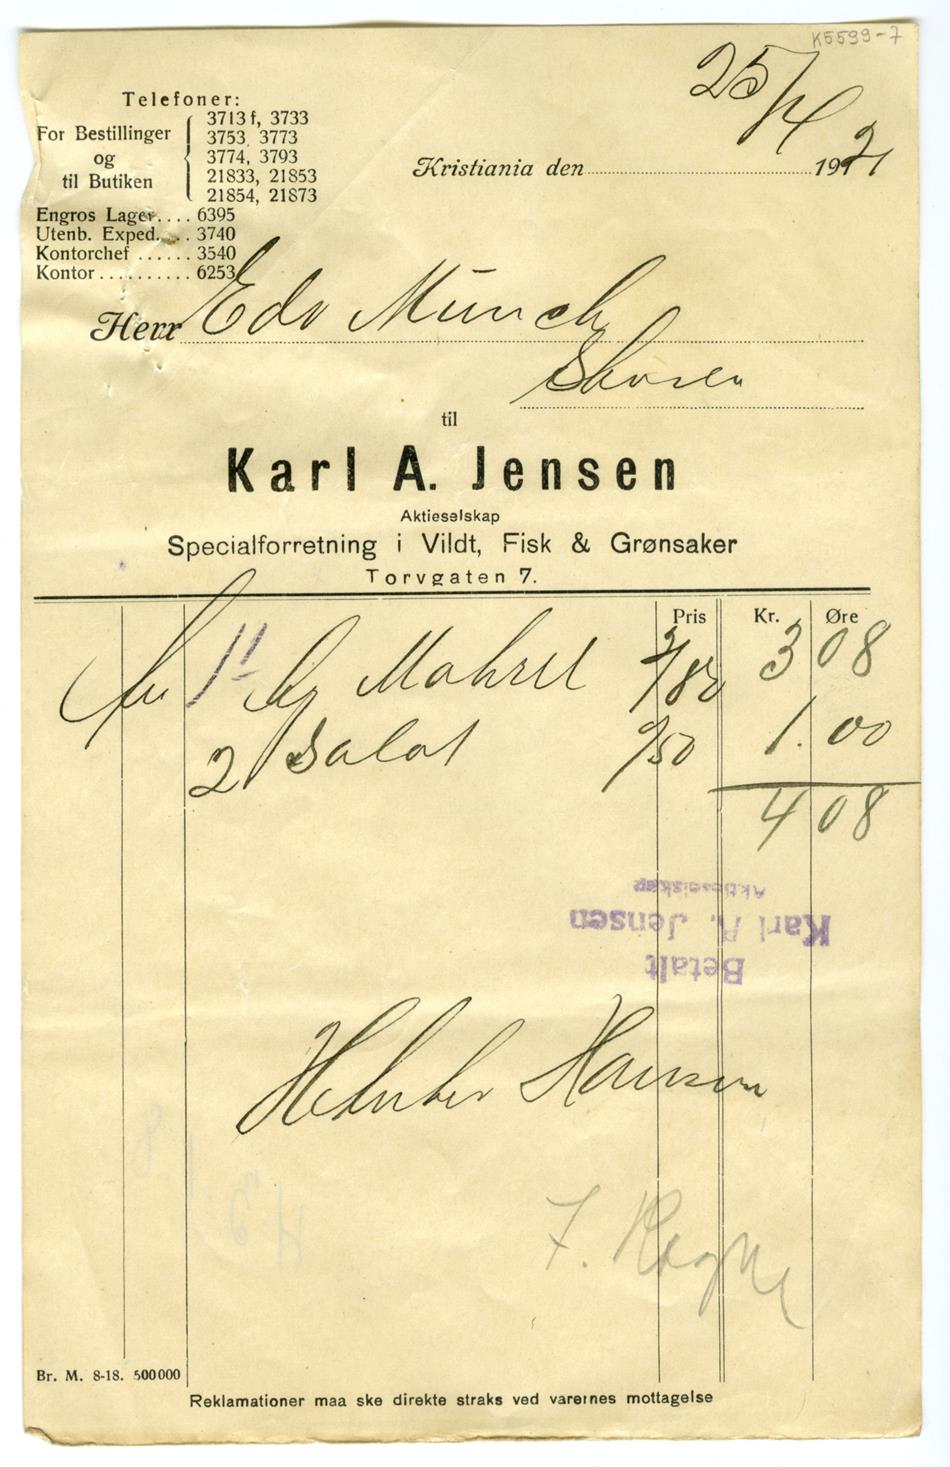 K5599-7
25/4
Telefoner:
For Bestillinger og til Butiken
3713 f, 3733
3753, 3773
3774, 3793
21833, 21853
21854, 21873
Engros Lager.... 6395
Utenb. Exped.... 3740
Kontorchef ...... 3540
Kontor .......... 6253
Kristiania den 1921
Herr Edv Munch
Skøien
til
Karl A. Jensen
Aktieselskap
Specialforretning i Vildt, Fisk & Grønsaker
Torvgaten 7.
Pris Kr. Øre
11 Makrel 3 08
2 Salat /50 1.00
4 08
Betalt
Karl A. Jensen
Aktieselskap
Hansen
Br. M. 8-18. 500000
Reklamationer maa ske direkte straks ved varernes mottagelse